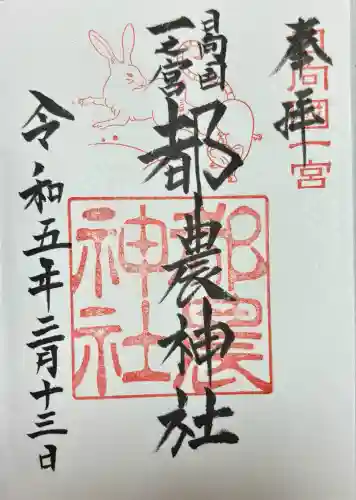 奉拝
日向国一宮
日向国
一之宮
都農神社
都農神社
令和五年三月十三日